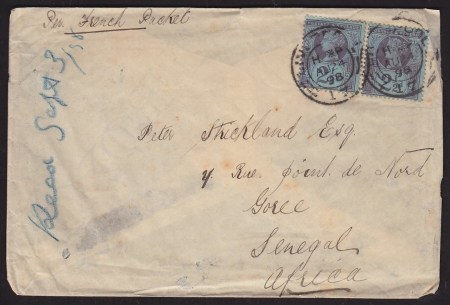 Per French Packet
Recd Sept 3/98
Peter Strickland Esq.
Rue point de Nord
Goree
Senegal
Africa
98